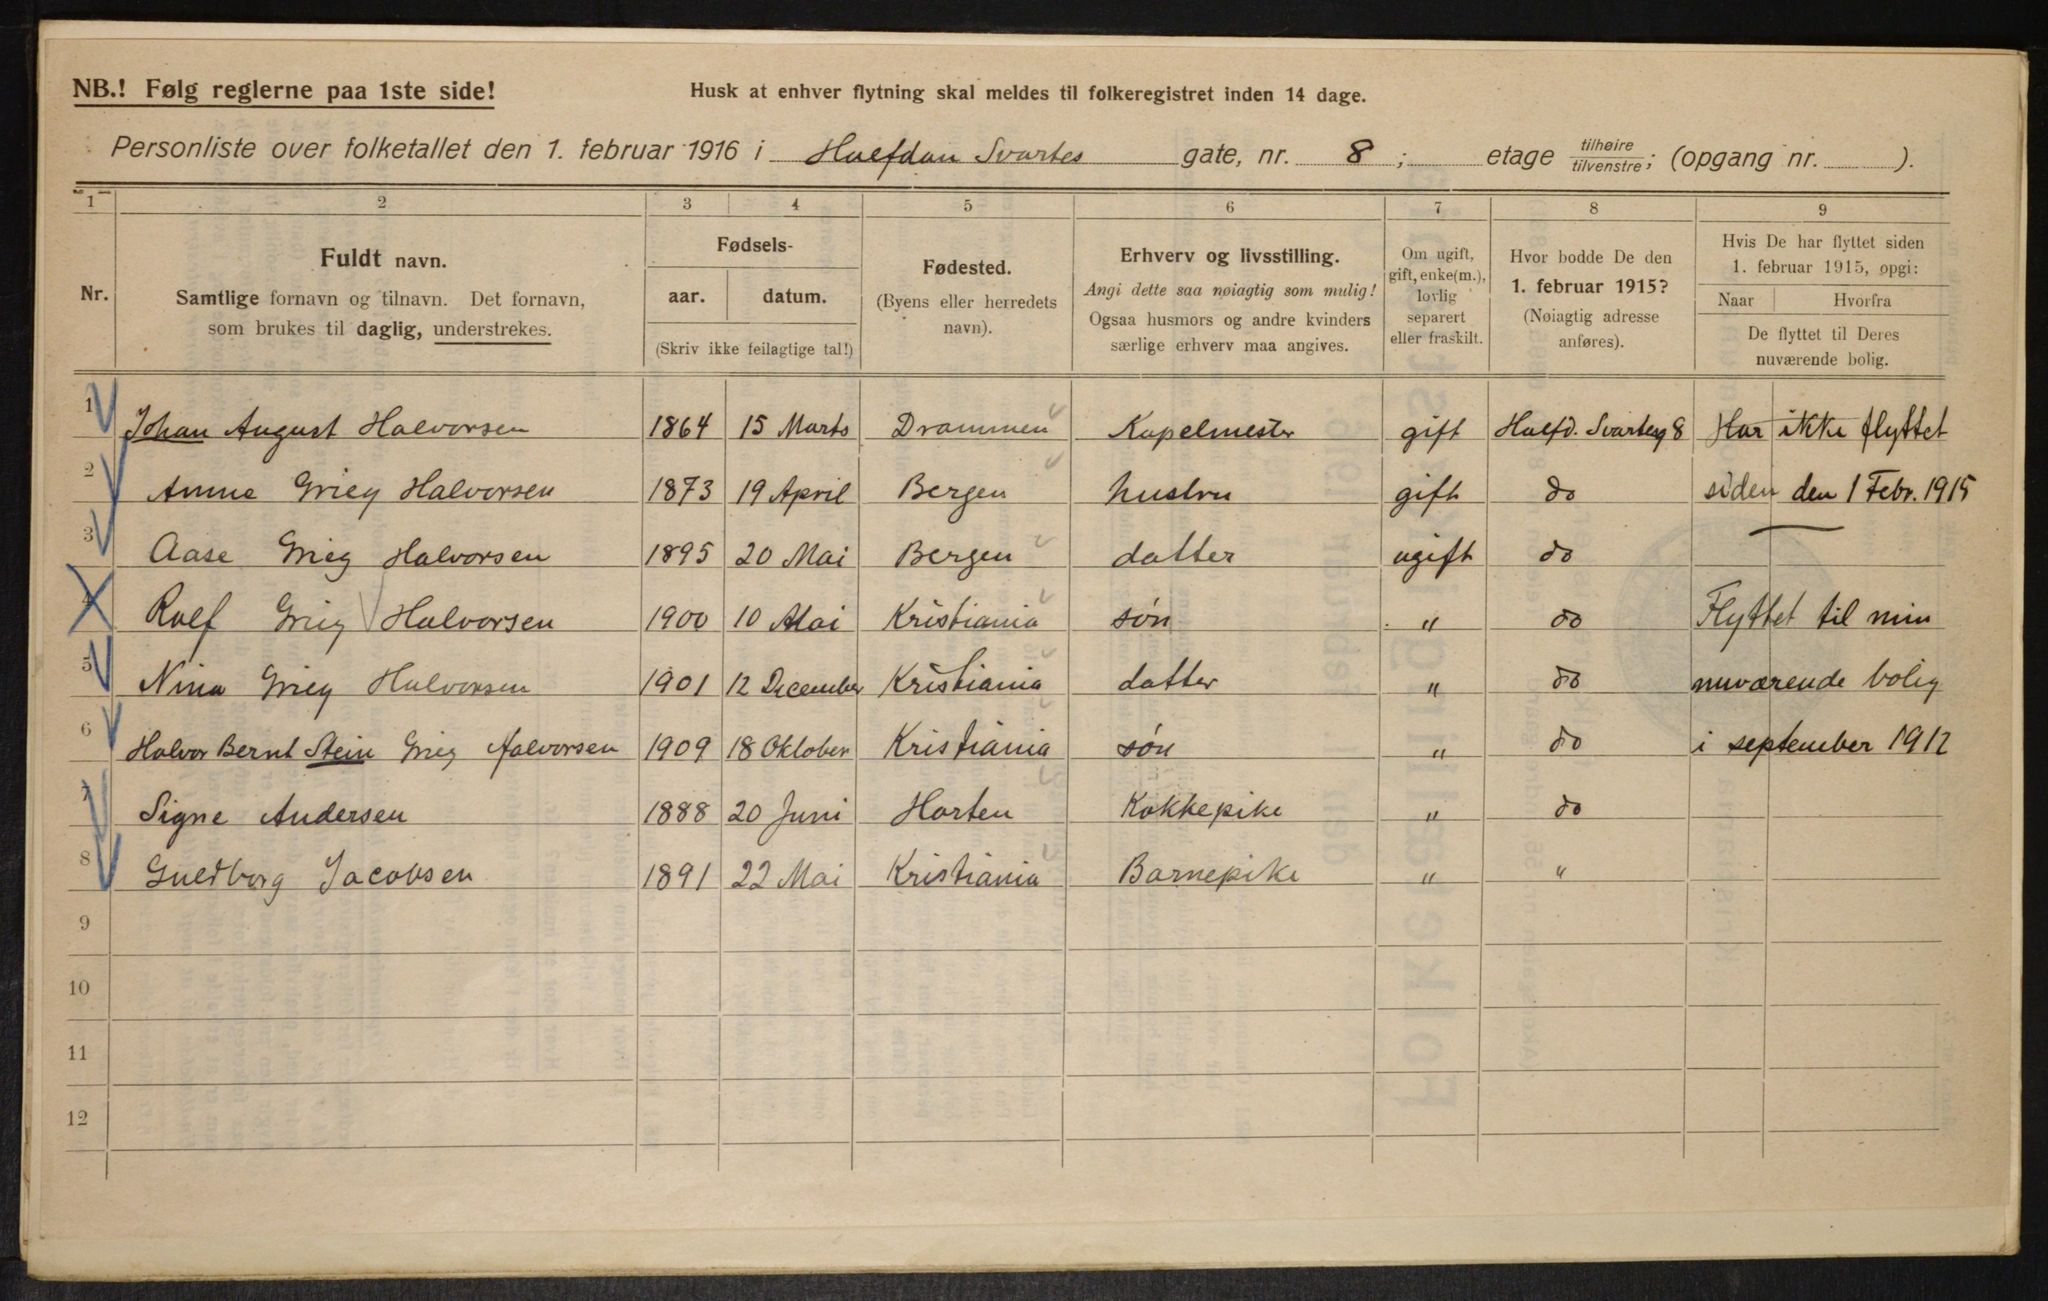 NB.! Følg reglerne paa 1ste side!
Husk at enhver flytning skal meldes til folkeregistret inden 14 dage.
Personliste over folketallet den 1. februar 1916 i Halfdan Svartes gate, nr. 8 ; etage tilhøire tilvenstre; (opgang nr. ).
1 2 3 4 5 6 7 8 9
Nr.
Fuldt navn.
Samtlige fornavn og tilnavn. Det fornavn,
som brukes til daglig, understrekes.
Fødsels-
aar. datum.
(Skriv ikke feilagtige tal!)
Fødested.
(Byens eller herredets
navn).
Erhverv og livsstilling.
Angi dette saa nøiagtig som mulig!
Ogsaa husmors og andre kvinders
særlige erhverv maa angives.
Om ugift,
gift, enke(m.),
lovlig
separert
eller fraskilt.
Hvor bodde De den
1. februar 1915?
(Nøiagtig adresse
anføres).
Hvis De har flyttet siden
1. februar 1915, opgi:
Naar Hvorfra
De flyttet til Deres
nuværende bolig.
1 Johan August Halvorsen 1864 15 Marts Drammen Kapelmester gift Halfd. Svartesg 8 Har ikke flyttet
2 Anne Grieg Halvorsen 1873 19 April Bergen hustru gift do siden den 1 Febr. 1915
3 Aase Grieg Halvorsen 1895 20 Mai Bergen datter ugift do
4 Rolf Grieg Halvorsen 1900 10 Mai Kristiania søn " do Flyttet til min
5 Nina Grieg Halvorsen 1901 12 December Kristiania datter " do nuværende bolig
6 Halvor Bernt Stein Grieg Halvorsen 1909 18 Oktober Kristiania søn " do i september 1912
7 Signe Andersen 1888 20 Juni Horten Kokkepike " do
8 Guldborg Jacobsen 1891 22 Mai Kristiania Barnepike " "
9
10
11
12